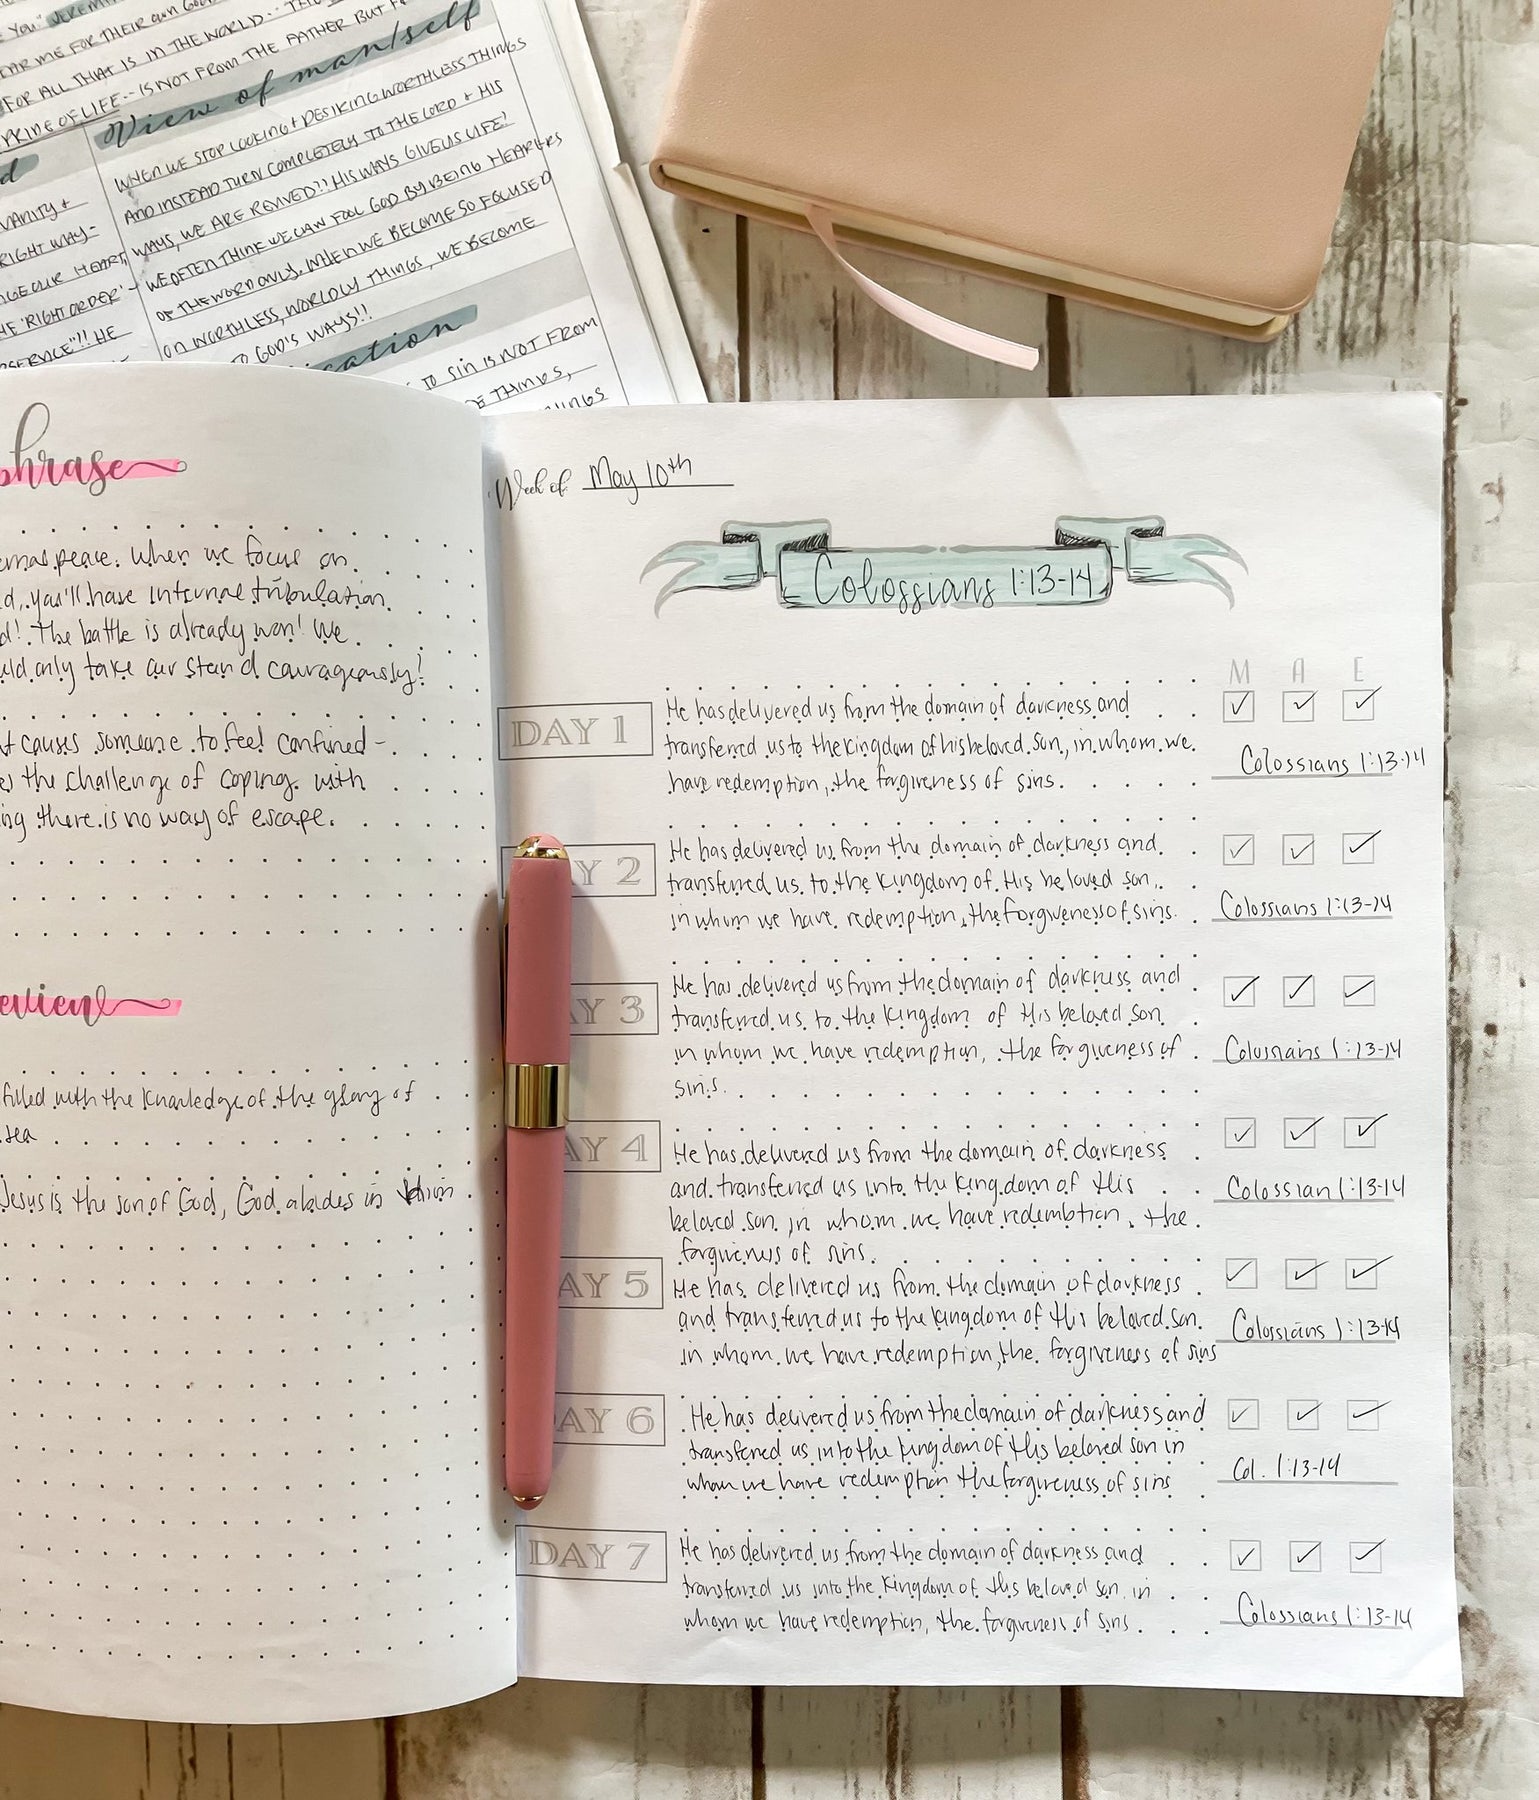 FOR ALL THAT IS IN THE WORLD -- THE
PRIDE OF LIFE -- IS NOT FROM THE FATHER BUT
View of man/self
WHEN WE STOP LOOKING + DESIRING WORTHLESS THINGS
AND INSTEAD TURN COMPLETELY TO THE LORD + HIS
WAYS, WE ARE REVIVED!! HIS WAYS GIVE US LIFE!
WE OFTEN THINK WE CAN FOOL GOD BY BEING HEARERS
OF THE WORD ONLY. WHEN WE BECOME SO FOCUSED
ON WORTHLESS, WORLDLY THINGS, WE BECOME
TO GOD'S WAYS!!
TO SIN IS NOT FROM
THINGS,
VANITY +
RIGHT WAY -
OUR HEART,
'RIGHT ORDER' -
SERVICE"!! HE
phrase
peace. When we focus on
you'll have internal tribulation
The battle is already won! We
only take our stand courageously!
causes someone to feel confined -
the challenge of coping with
there is no way of escape.
eview
filled with the knowledge of the glory of
sea
Jesus is the son of God, God abides in him
Week of: May 10th
Colossians 1:13-14
M A E
DAY 1
He has delivered us from the domain of darkness and
transferred us to the kingdom of his beloved son, in whom we
have redemption, the forgiveness of sins.
Colossians 1:13-14
AY 2
He has delivered us from the domain of darkness and
transferred us to the kingdom of His beloved son,
in whom we have redemption, the forgiveness of sins.
Colossians 1:13-14
AY 3
He has delivered us from the domain of darkness and
transferred us to the kingdom of His beloved son
in whom we have redemption, the forgiveness of
sins.
Colossians 1:13-14
AY 4
He has delivered us from the domain of darkness
and transferred us into the kingdom of His
beloved son, in whom we have redemption, the
forgiveness of sins.
Colossian 1:13-14
AY 5
He has delivered us from the domain of darkness
and transferred us to the kingdom of His beloved son
in whom we have redemption, the forgiveness of sins
Colossians 1:13-14
AY 6
He has delivered us from the domain of darkness and
transfered us into the kingdom of His beloved son in
whom we have redemption the forgiveness of sins
Col. 1:13-14
DAY 7
He has delivered us from the domain of darkness and
transferred us into the kingdom of His beloved son in
whom we have redemption, the forgiveness of sins.
Colossians 1:13-14